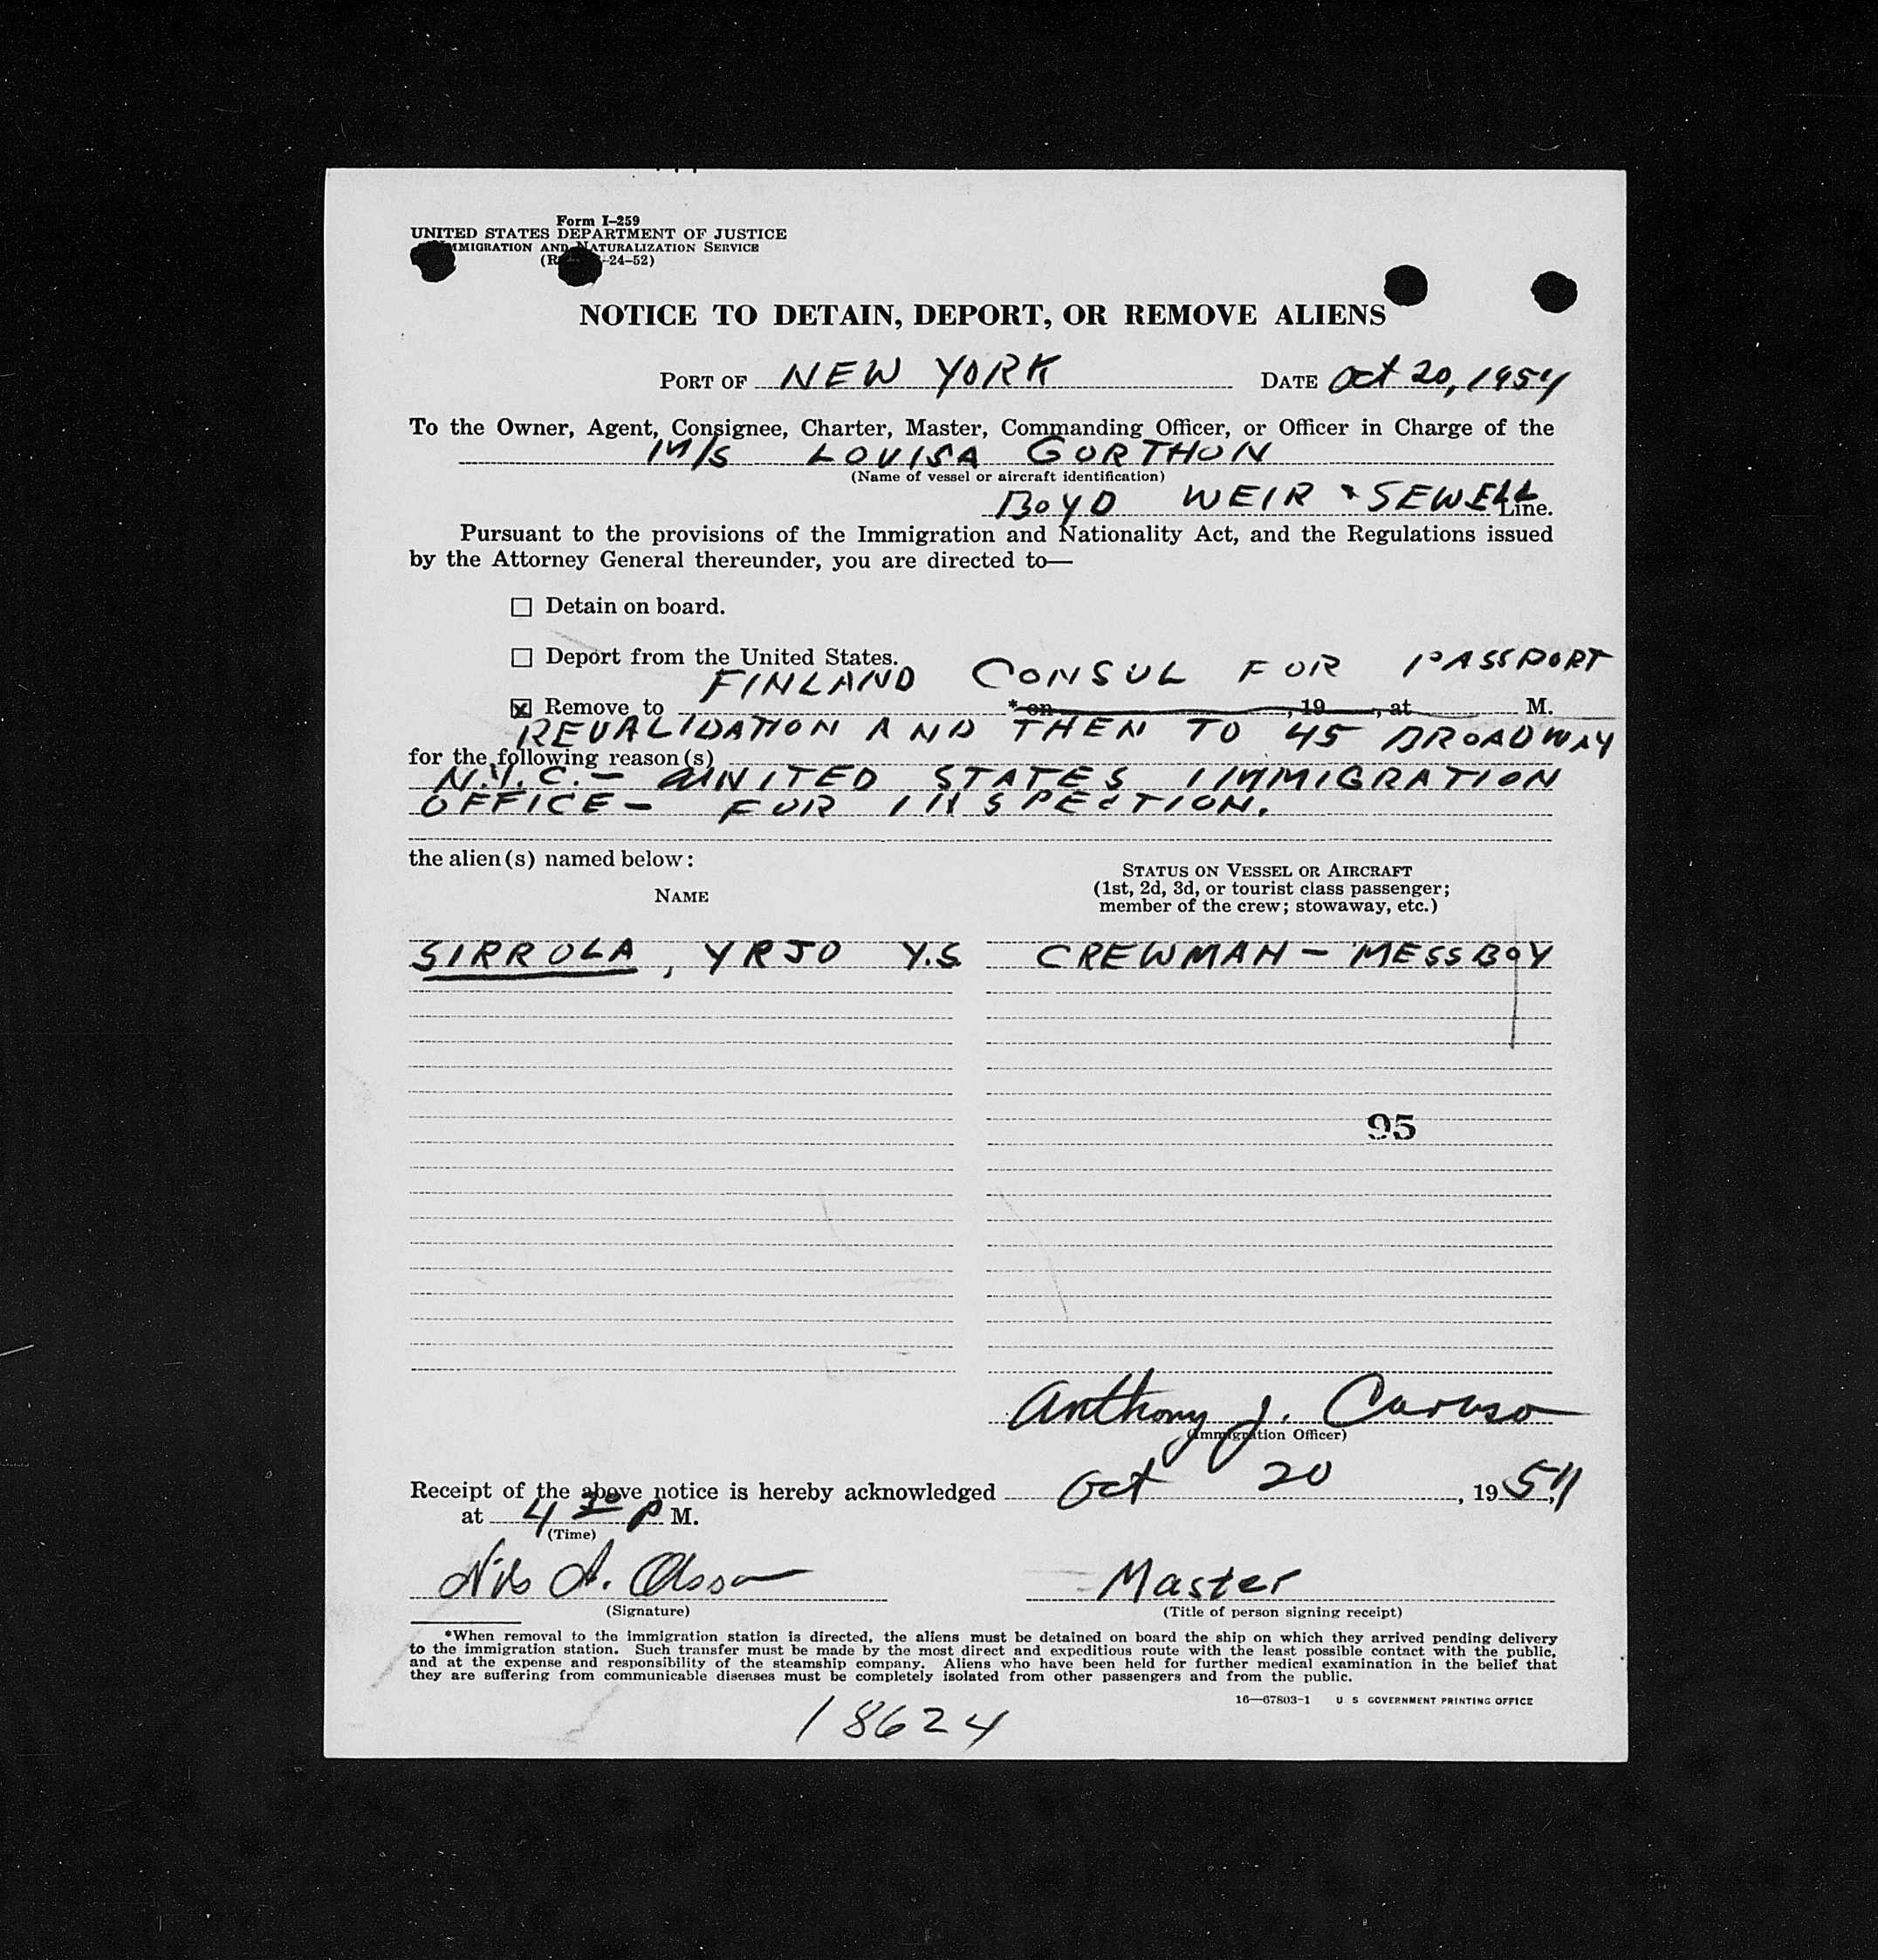 Form I-259
UNITED STATES DEPARTMENT OF JUSTICE
IMMIGRATION AND NATURALIZATION SERVICE
24-52)
NOTICE TO DETAIN, DEPORT, OR REMOVE ALIENS
PORT OF NEW YORK DATE Oct 20, 1954
To the Owner, Agent, Consignee, Charter, Master, Commanding Officer, or Officer in Charge of the
M/S LOUISA GORTHON
(Name of vessel or aircraft identification)
BOYD WEIR & SEWELL Line.
Pursuant to the provisions of the Immigration and Nationality Act, and the Regulations issued
by the Attorney General thereunder, you are directed to—
☐ Detain on board.
☐ Deport from the United States.
FINLAND CONSUL FOR PASSPORT
☒ Remove to * on , 19 , at M.
REVALIDATION AND THEN TO 45 BROADWAY
for the following reason(s)
N.Y.C. — UNITED STATES IMMIGRATION
OFFICE — FOR INSPECTION.
the alien(s) named below:
NAME
STATUS ON VESSEL OR AIRCRAFT
(1st, 2d, 3d, or tourist class passenger;
member of the crew; stowaway, etc.)
SIRROLA, YRJO Y.S. CREWMAN — MESSBOY
95
Anthony J. Caruso
(Immigration Officer)
Receipt of the above notice is hereby acknowledged Oct 20, 1954
at 4 30 P M.
(Time)
Nils A. Olsson Master
(Signature) (Title of person signing receipt)
*When removal to the immigration station is directed, the aliens must be detained on board the ship on which they arrived pending delivery
to the immigration station. Such transfer must be made by the most direct and expeditious route with the least possible contact with the public,
and at the expense and responsibility of the steamship company. Aliens who have been held for further medical examination in the belief that
they are suffering from communicable diseases must be completely isolated from other passengers and from the public.
16—67803-1 U S GOVERNMENT PRINTING OFFICE
18624